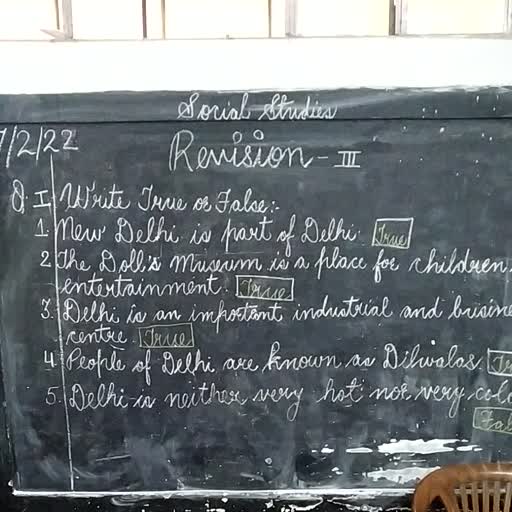 Social Studies
7/2/22
Revision - III
Q. I. Write True or False:-
1. New Delhi is part of Delhi. True
2. The Doll's Museum is a place for children
entertainment. True
3. Delhi is an important industrial and
centre True
4. People of Delhi are known as Dilwalas.
5. Delhi is neither very hot nor very